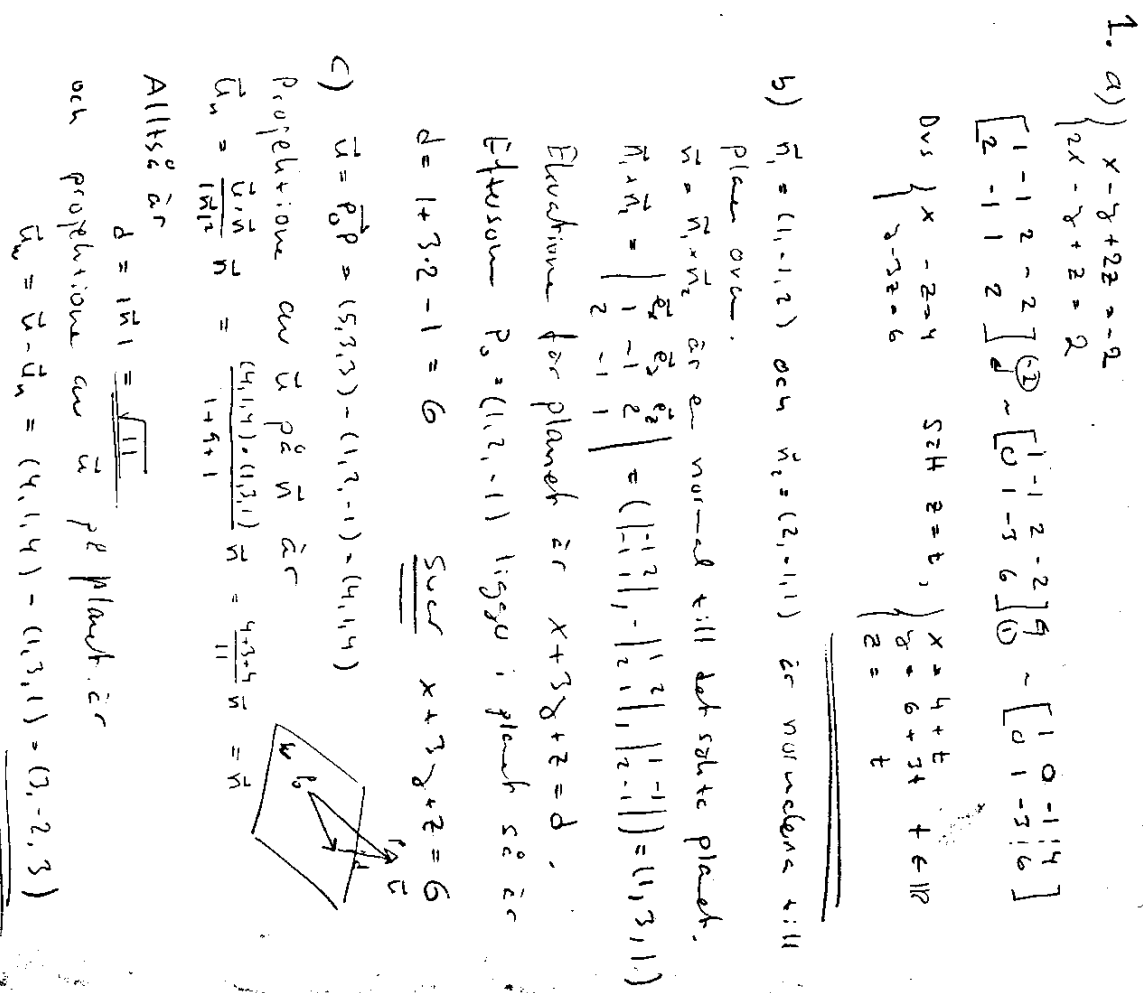 1. a) { x - y + 2z = -2
{ 2x - y + z = 2
[1 -1 2 -2; 2 -1 1 2] (-2) ~ [1 -1 2 -2; 0 1 -3 6] (1) ~ [1 0 -1 | 4; 0 1 -3 | 6]
Dvs { x - z = 4
{ y - 3z = 6
Sätt z = t, { x = 4 + t
{ y = 6 + 3t t ∈ ℝ
{ z = t
b) n̄₁ = (1,-1,2) och n̄₂ = (2,-1,1) är normalerna till
planen ovan.
n̄ = n̄₁ × n̄₂ är en normal till det sökta planet.
n̄₁ × n̄₂ = | ēx ēy ēz; 1 -1 2; 2 -1 1 | = ( |-1 2; -1 1|, -|1 2; 2 1|, |1 -1; 2 -1| ) = (1,3,1)
Ekvationen för planet är x + 3y + z = d.
Eftersom P₀ = (1,2,-1) ligger i planet så är
d = 1 + 3·2 - 1 = 6 Svar x + 3y + z = 6
c) ū = P₀P = (5,3,3) - (1,2,-1) = (4,1,4)
Projektionen av ū på n̄ är
ūₙ = (ū·n̄)/|n̄|² n̄ = ((4,1,4)·(1,3,1))/(1+9+1) n̄ = (4+3+4)/11 n̄ = n̄
P₀ P ū d W
Alltså är
d = |n̄| = √11
och projektionen av ū på planet är
ū_w = ū - ūₙ = (4,1,4) - (1,3,1) = (3,-2,3)